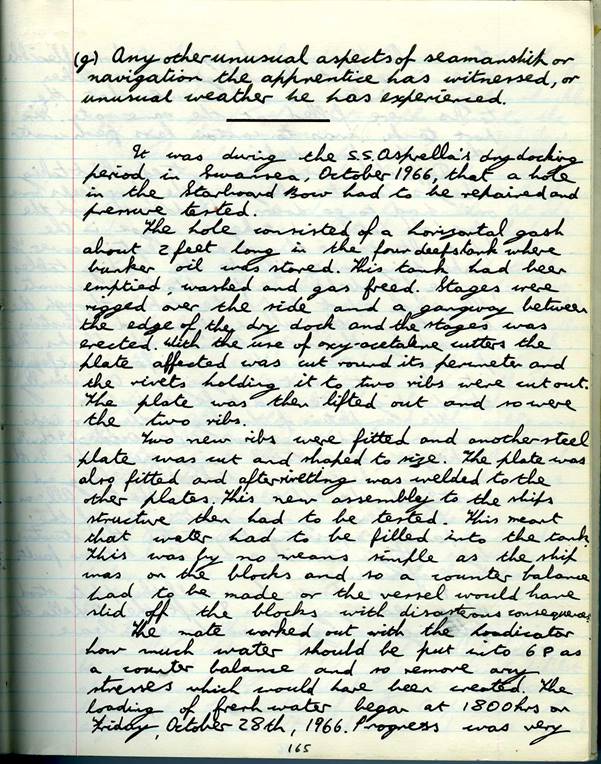 (g) Any other unusual aspects of seamanship or
navigation the apprentice has witnessed, or
unusual weather he has experienced.
It was during the S.S. Asprella's dry docking
period in Swansea, October 1966, that a hole
in the Starboard Bow had to be repaired and
pressure tested.
The hole consisted of a horizontal gash
about 2 feet long in the four deepstank where
bunker oil was stored. This tank had been
emptied, washed and gas freed. Stages were
rigged over the side and a gangway between
the edge of the dry dock and the stages was
erected. With the use of oxy-acetalene cutters the
plate affected was cut round its perimeter and
the rivets holding it to two ribs were cut out.
The plate was then lifted out and so were
the two ribs.
Two new ribs were fitted and another steel
plate was cut and shaped to size. The plate was
also fitted and after rivetting was welded to the
other plates. This new assembly to the ships
structure then had to be tested. This meant
that water had to be filled into the tank.
This was by no means simple as the ship
was on the blocks and so a counter balance
had to be made or the vessel would have
slid off the blocks with disasterous consequences.
The mate worked out with the loadicater
how much water should be put into 6P as
a counter balance and so remove any
stresses which would have been created. The
loading of fresh water began at 1800hrs on
Friday, October 28th, 1966. Progress was very
165